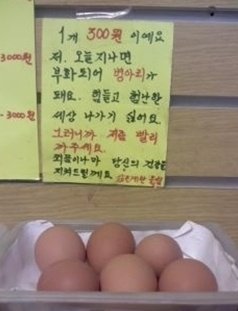 3000원
- 3000원
1개 300원 이예요
저. 오늘지나면
부화되어 병아리가
돼요. 힘들고 험난한
세상 나가기 싫어요.
그러니까 저좀 빨리
까주세요.
쬐끔이나마 당신의 건강을
지켜드릴께요.